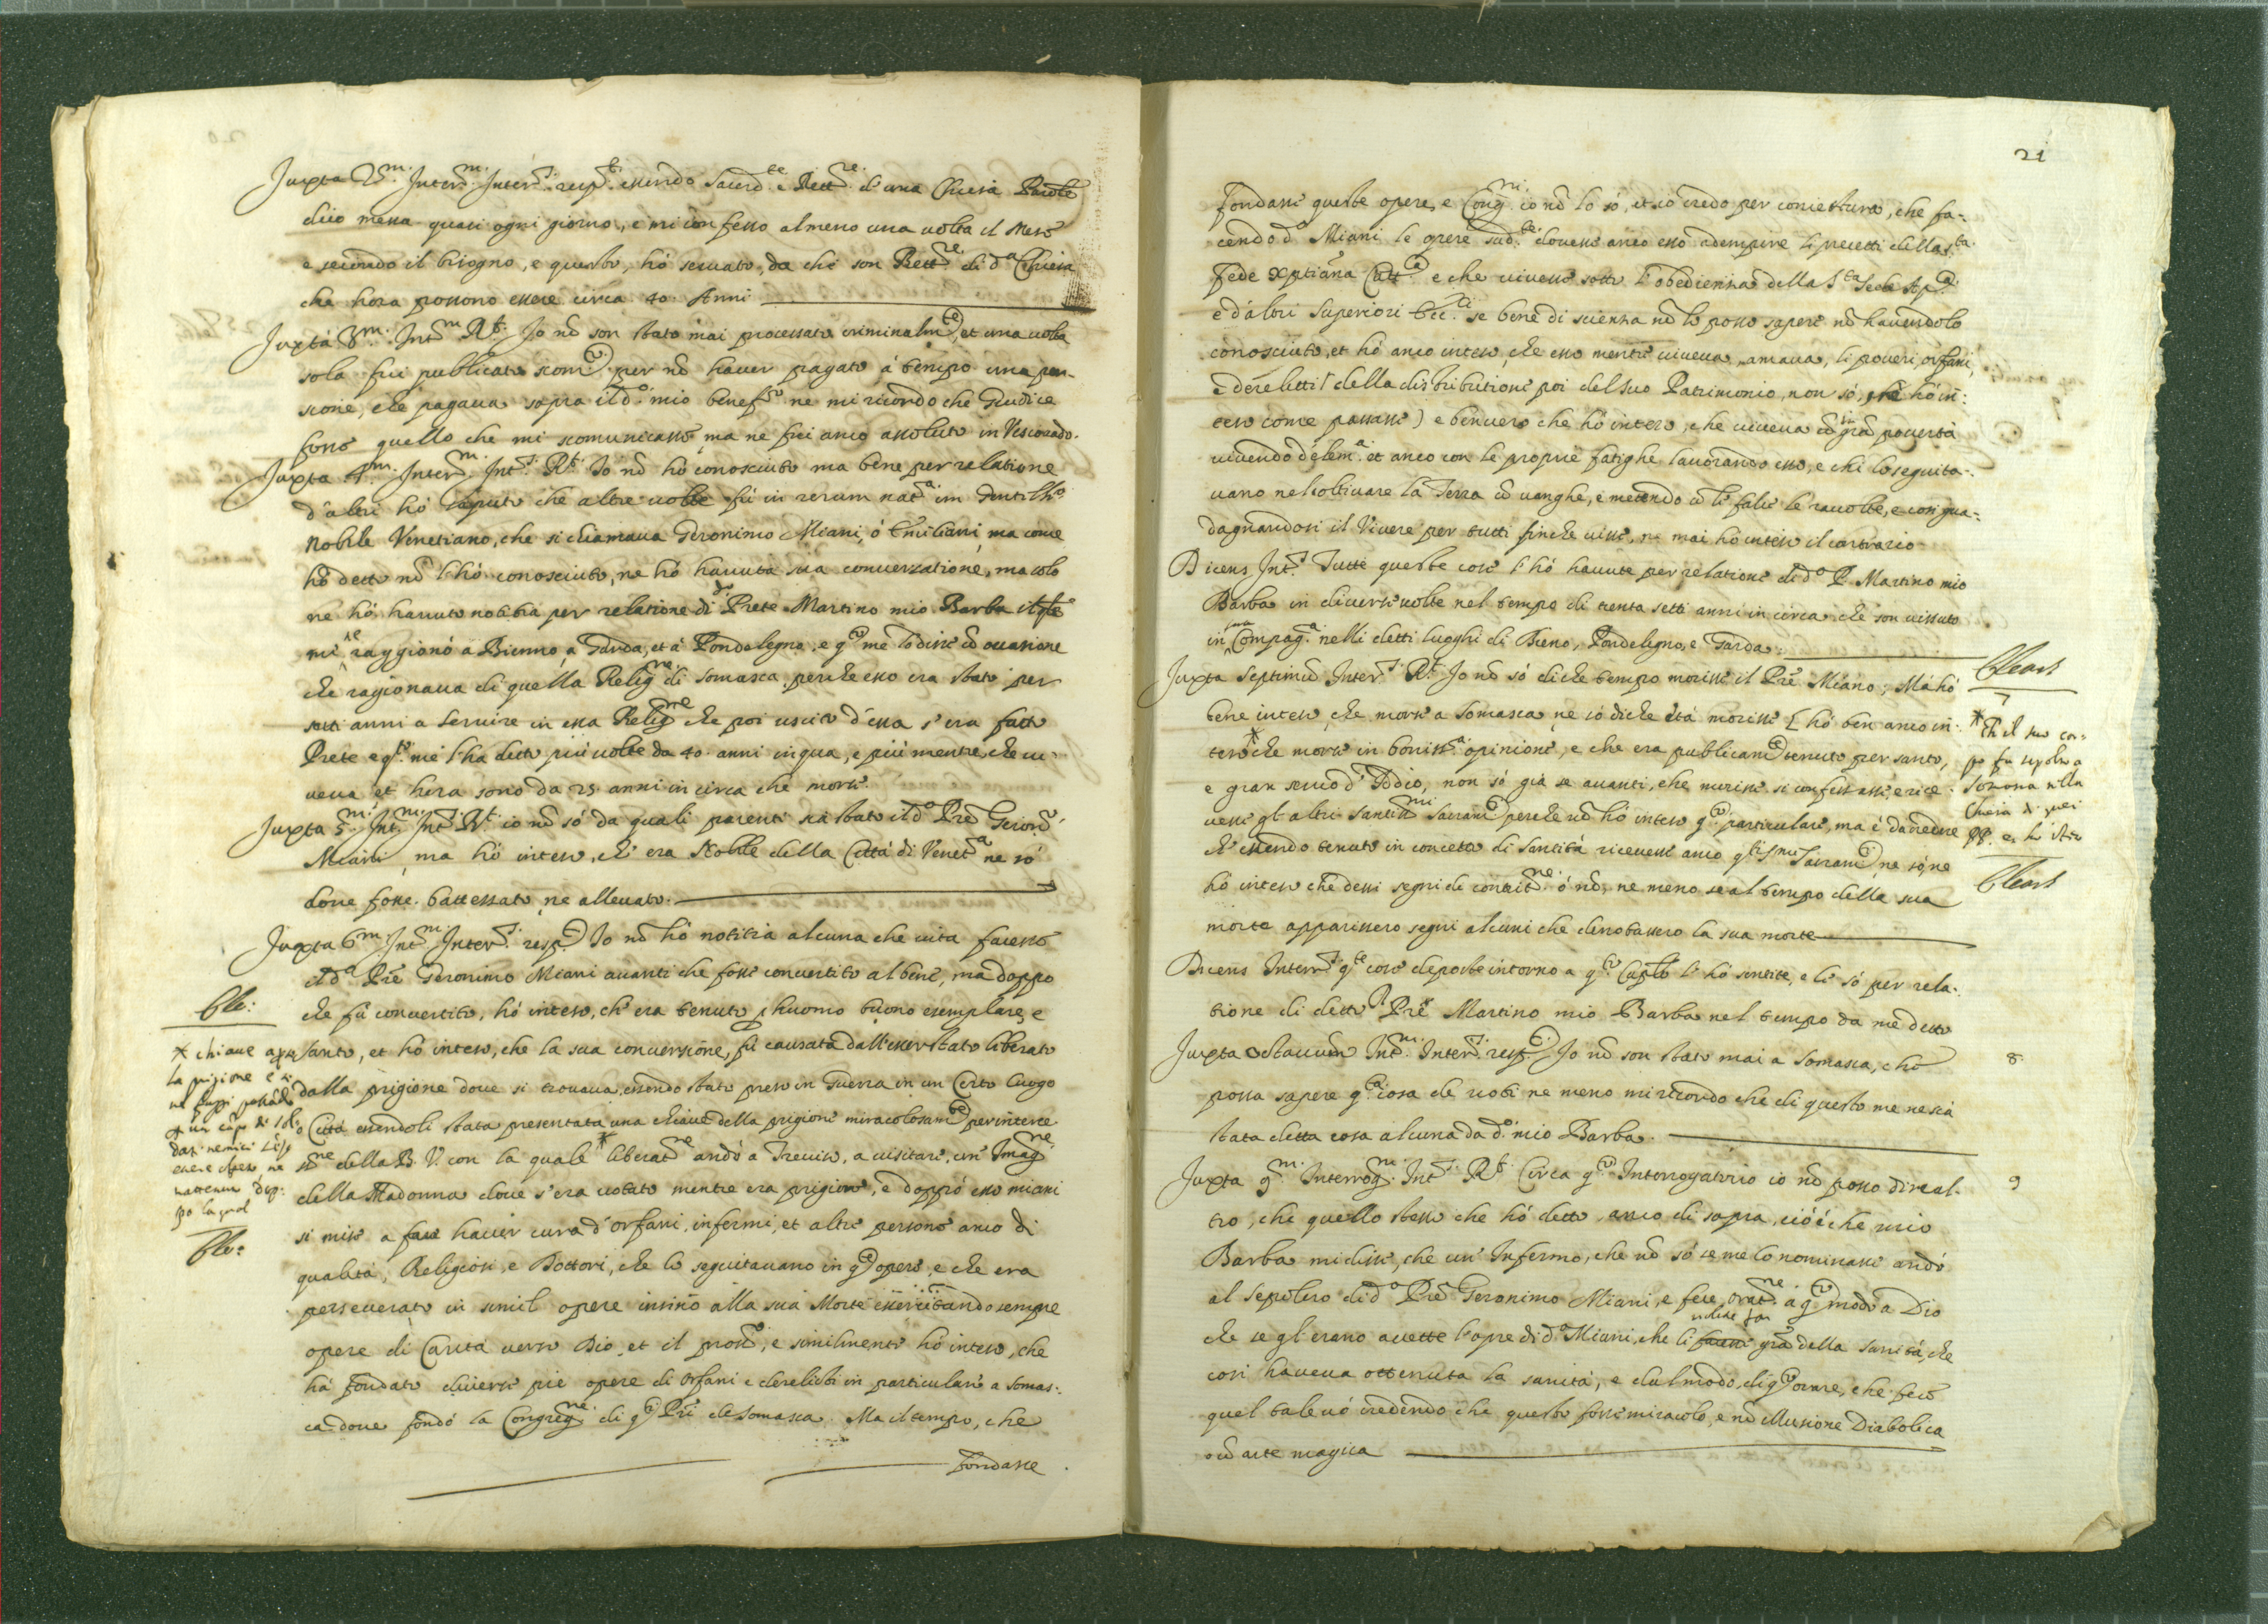 Juxta 2.m Inter.m Inter.s resp.t essendo Sacerd.te e Rett.re d'una Chiesa Parole
dico messa quasi ogni giorno, e mi confesso almeno una volta il Mese
e secondo il bisogno, e questo, hó servato, da che son Rett.re di d.a Chiesa
che hora possono essere circa 40 Anni
Juxta 3.m Int.m R.t Io nõ son stato mai processato criminalm.te, et una volta
sola fui publicato scom.to per nõ haver pagato á tempo una pen-
sione, che pagava sopra il d.o mio benef.o ne mi ricordo che Giudice
fosse quello che mi scomunicasse ma ne fui anco assoluto in Vescovado.
Juxta 4.m Inter.m Int.s R.t Io nõ hó conosciuto ma bene per relatione
d'altri hó saputo che altre volte fú in rerum nat.a un Gentilh.o
Nobile Venetiano, che si chiamava Geronimo Miani, ó Emiliani, ma come
hó detto nõ l'hó conosciuto, ne hó havuta sua conversatione, ma solo
ne hó havuto notitia per relatione di Prete Martino mio Barba il qle
mi ne raggionó a Bienno, a Garda, et á Pondelegno, e q.o me lo disse cõ occasione
che ragionava di quella Relig.ne di Somasca perche esso era stato per
sette anni a servire in essa Relig.ne che poi uscito d'essa s'era fatto
Prete e q.o me l'ha detto piú volte da 40. anni in qua, e piú mentre che vi-
veva et hora sono da 25 anni in circa che morse.
Juxta 5.m Int.m Int.s R.t io nõ só da quali parenti sia stato il d.o Prẽ Geron.o
Miani, ma hó inteso, ch'era Nobile della Cittá di Venet.a ne só
dove fosse battezzato, ne allevato.
Juxta 6.m Int.m Inter.s resp.t Io nõ hó notitia alcuna che vita facesse
il d.o Prẽ Geronimo Miani avanti che fosse convertito al bene, ma doppo
che fú convertito, hó inteso, ch'era tenuto p huomo buono esemplare, e
santo, et hó inteso, che la sua conversione, fú causata dall'esser stato liberato
dalla prigione dove si trovava, essendo stato preso in Guerra in un Certo luogo
o Cittá essendoli stata presentata una chiave della prigione miracolosam.te per interce-
ss.ne della B. V. con la quale * liberat.ne andó a Treviso, a visitare un' Imag.ne
della Madonna dove s'era votato mentre era prigione, e doppó esso miani
si mise a fare haver cura d'orfani, infermi, et altre persone anco di
qualitá, Religiosi, e Dottori, che lo seguitavano in q.te opere, e che era
perseverato in simil opere insino alla sua Morte essercitando sempre
opere di Caritá verso Dio, et il pross.o, e similmente hó inteso, che
há fondato diverse pie opere di Orfani e derelitti in particulare a Somas-
ca dove fondó la Congreg.ne di q.ti Prĩ de Somasca. Ma il tempo, che
fondasse
* chiave aprì
la prigione e
essere
21
fondasse queste opere, e Cong.ni io nõ lo só, et io credo per coniettura, che fa-
cendo d.o Miani le opere sud.te dovesse anco esso adempire li precetti della s.ta
Fede xptiana Catt.ca e che vivesse sotto l'obedienza della S.ta Sede Ap.ca
e d'altri Superiori Ecc.ci se bene di scienza nõ lo posso sapere nõ havendolo
conosciuto, et hó anco inteso, che esso mentre viveva, amava, li poveri, orfani,
e derelitti (della distributione poi del suo Patrimonio, non só, ne hó in-
teso come passasse) e benvero che hó inteso, che viveva cõ in grã povertá
vivendo d'elem.a et anco con le proprie fatighe lavorando esso, e chi lo seguita-
vano nel coltivare la Terra cõ vanghe, e metendo cõ li falci le racolte, e cosi gua-
dagnandosi il Vivere per tutti finche visse, ne mai hó inteso il contrario
Dicens Int.s Tutte queste cose l'hó havute per relatione di d.o P. Martino mio
Barba in diverse volte nel tempo di trenta sette anni in circa che son vissuto
in sua Compag.a nelli detti luoghi di Bieno, Pondelegno, e Garda.
Juxta Septimũ Inter.s R.t Io nõ só di che tempo morisse il Prẽ Miano; Má hó
bene inteso, che morse a Somasca ne só di che etá morisse [hó ben anco in-
teso * che morse in boniss.a opinione, e che era publicam.te tenuto per santo,
e gran servo d'Iddio, non só giá se avanti, che morisse si confessasse, e rice-
vesse gl'altri Santiss.mi Sacram.ti perche nõ hó inteso q.o particulare, ma é da credere
ch'essendo tenuto in concetto di santitá ricevesse anco q.li s.mi Sacram.ti, ne só, ne
hó inteso che dessi segni di contrit.ne ó nõ, ne meno se al tempo della sua
morte apparissero segni alcuni che denotassero la sua morte
Dicens Inter.s q.te cose deposte intorno a q.o Caplo l'hó sentite, e le só per rela-
tione di detto P. Prẽ Martino mio Barba nel tempo da me detto
Juxta octavum Int.m Inter.s resp.t Io nõ son stato mai a Somasca, che
possa sapere q.a cosa de voti ne meno mi ricordo che di questo me ne sia
stata detta cosa alcuna da d.o mio Barba.
Juxta 9.m Interrog.m Int.s R.t Circa q.o Interrogatorio io nõ posso dire al-
tro, che quello stesso che hó detto anco di sopra, cióé che mio
Barba mi disse, che un' Infermo, che nõ só se me lo nominasse andó
al sepolcro di d.o Prẽ Geronimo Miani, e fece orat.ne a q.o modo a Dio
che se gl'erano accette l'opre di d.o Miani, che li volesse far facesse grã della sanitá, che
cosi haveva ottenuta la sanitá, e dal modo, di q.o orare, che fece
quel tale vó credendo che questo fosse miracolo, e nõ illusione Diabolica
o cõ arte magica
7
* Ch'il suo cor-
po fu sepolto a
Somasca nella
Chiesa di quei
PP.
8
9